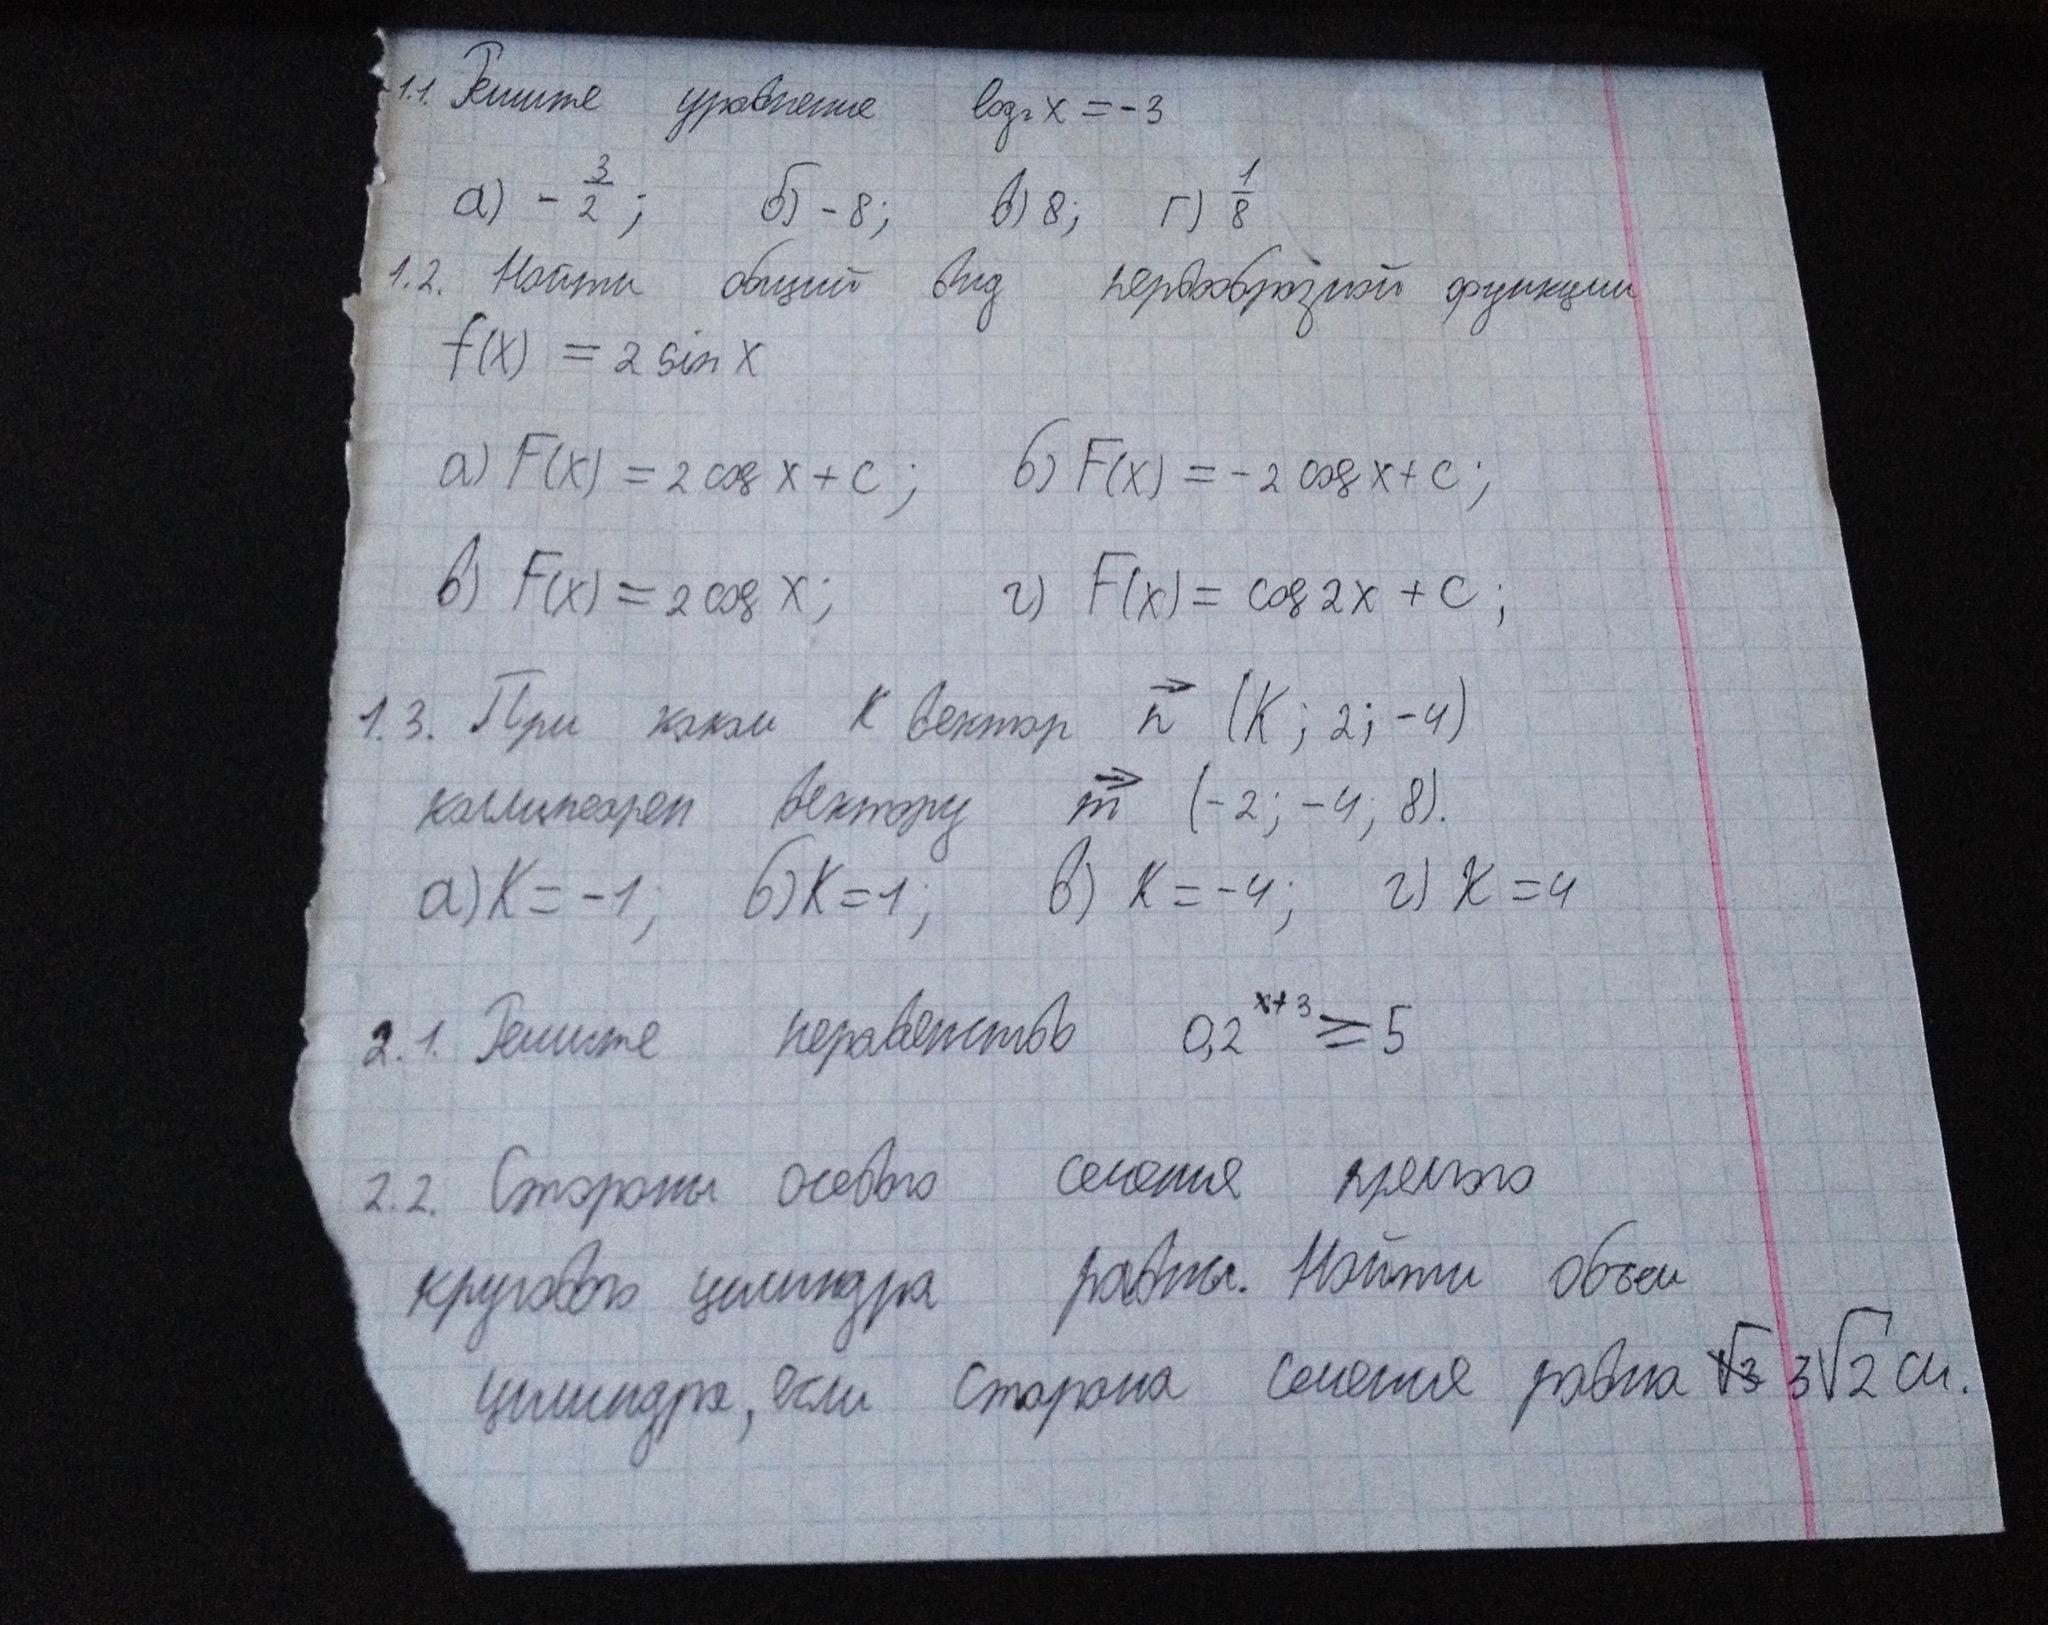 1.1. Решите уравнение log₂x = -3
а) - 3/2; б) -8; в) 8; г) 1/8
1.2. Найти общий вид первообразной функции
f(x) = 2 sin x
а) F(x) = 2 cos x + c; б) F(x) = -2 cos x + c;
в) F(x) = 2 cos x; г) F(x) = cos 2x + c;
1.3. При каком K вектор n⃗ (K; 2; -4)
коллинеарен вектору m⃗ (-2; -4; 8).
а) K = -1; б) K = 1; в) K = -4; г) K = 4
2.1. Решите неравенство 0,2^(x+3) ≥ 5
2.2. Стороны осевого сечения прямого
кругового цилиндра равны. Найти объем
цилиндра, если сторона сечения равна 3√2 см.